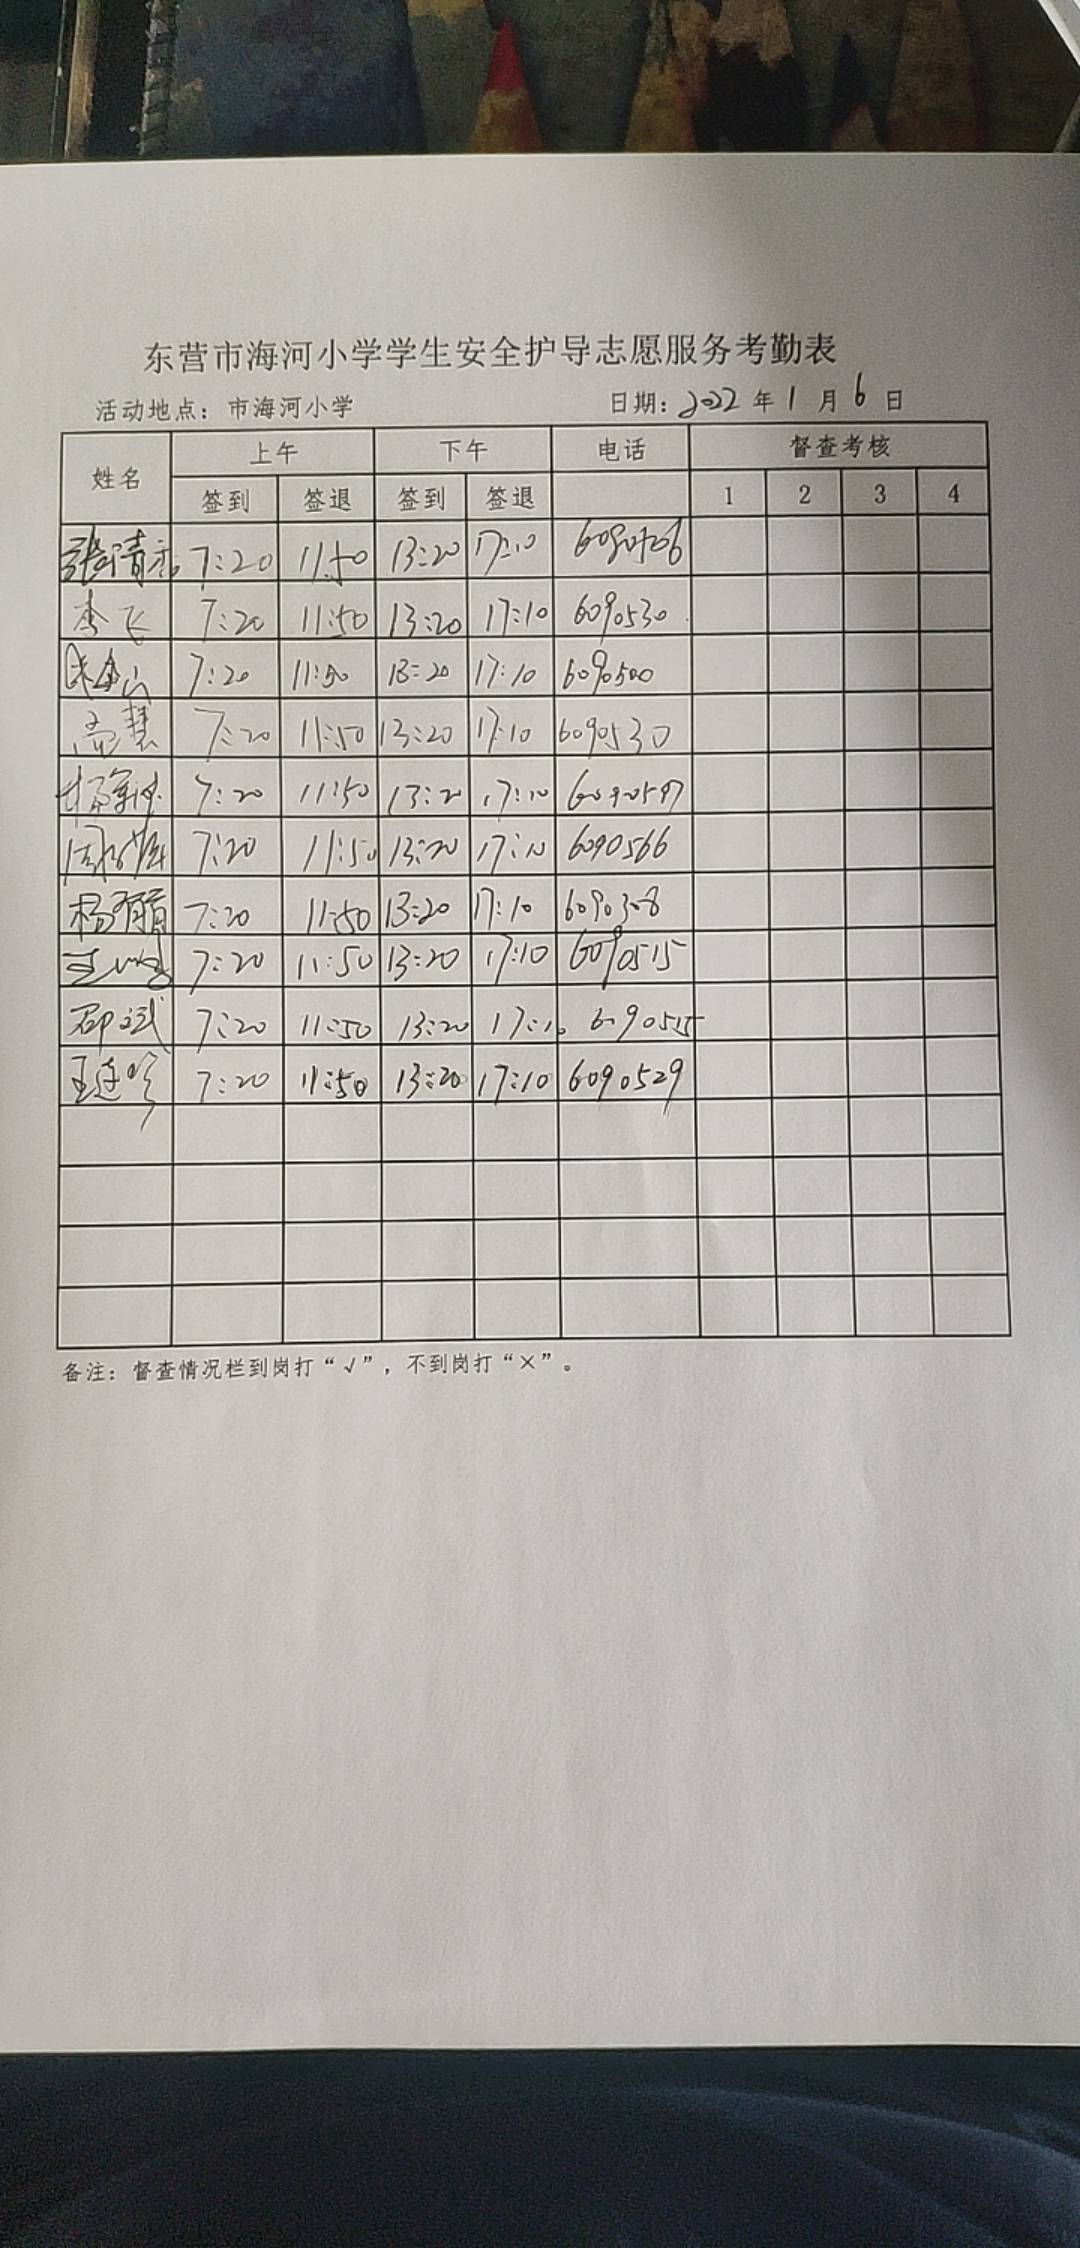 东营市海河小学学生安全护导志愿服务考勤表
活动地点：市海河小学 日期：2022年1月6日
姓名 上午 下午 电话 督查考核
签到 签退 签到 签退 1 2 3 4
张清 7:20 11:50 13:20 17:10
李飞 7:20 11:50 13:20 17:10 6090530
7:20 11:50 13:20 17:10 6090500
高慧 7:20 11:50 13:20 17:10 6090530
杨 7:20 11:50 13:20 17:10 6090597
7:20 11:50 13:20 17:10 6090566
杨 7:20 11:50 13:20 17:10 6090308
王 7:20 11:50 13:20 17:10 6090515
邵斌 7:20 11:50 13:20 17:10 6090525
王 7:20 11:50 13:20 17:10 6090529
备注：督查情况栏到岗打“√”，不到岗打“×”。